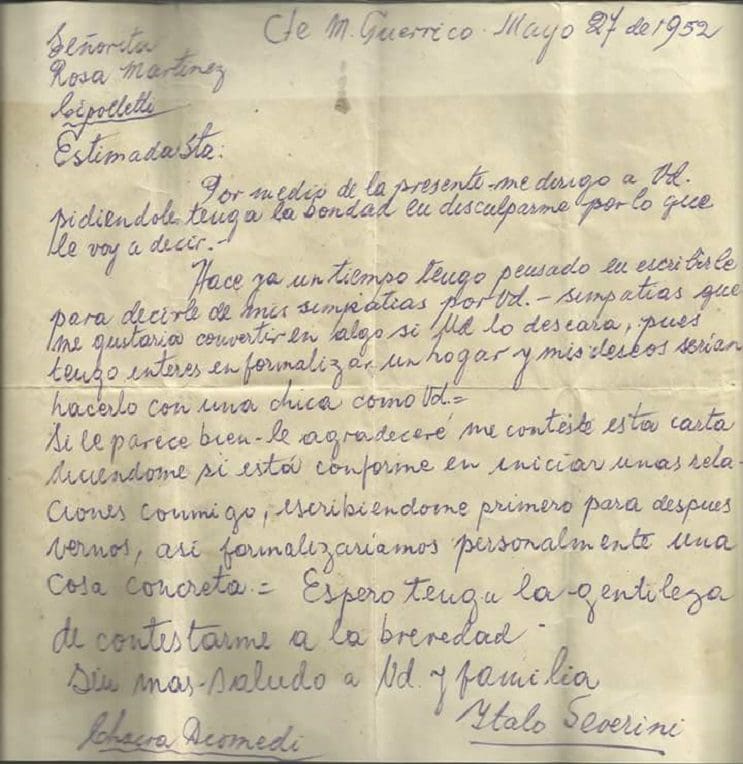 Cte M. Guerrico. Mayo 27 de 1952
Señorita
Rosa Martinez
Cipolletti
Estimada Sta:
Por medio de la presente me dirigo a Vd.
pidiendole tenga la bondad en disculparme por lo que
le voy a decir.-
Hace ya un tiempo tengo pensado en escribirle
para decirle de mis simpatias por Vd. - simpatias que
me gustaria convertir en algo si Vd lo deseara, pues
tengo interes en formalizar un hogar y mis deseos serian
hacerlo con una chica como Vd.=
Si le parece bien-le agradeceré me conteste esta carta
diciendome si está conforme en iniciar unas rela-
ciones conmigo, escribiendome primero para despues
vernos, asi formalizariamos personalmente una
cosa concreta.= Espero tenga la gentileza
de contestarme a la brevedad -
Sin mas-saludo a Vd. y familia
Italo Severini
Chacra Diomedi